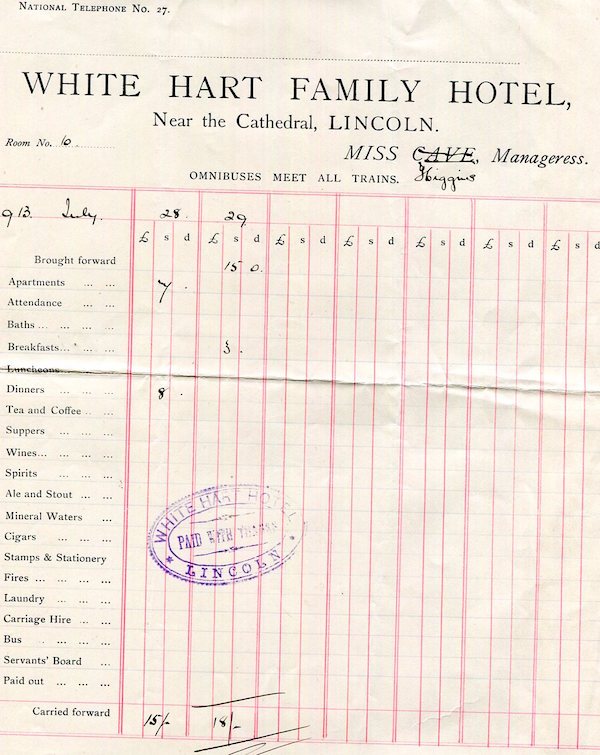 NATIONAL TELEPHONE NO. 27.
WHITE HART FAMILY HOTEL,
Near the Cathedral, LINCOLN.
Room No. 10
MISS CAVE, Manageress.
Higgins
OMNIBUSES MEET ALL TRAINS.
913. July. 28. 29
£ s d £ s d £ s d £ s d £ s d £ s d £ s d
Brought forward 15 0.
Apartments ... ... 7 .
Attendance ... ...
Baths ... ... ... ...
Breakfasts... ... ... 3 .
Luncheons
Dinners ... ... ... 8 .
Tea and Coffee .. ...
Suppers ... ... ...
Wines... ... ... ...
Spirits ... ... ...
Ale and Stout ... ...
Mineral Waters ...
Cigars ... ... ...
Stamps & Stationery
Fires ... ... ... ...
Laundry ... ... ...
Carriage Hire ... ...
Bus . ... ... ...
Servants' Board ...
Paid out ... ... ...
Carried forward 15/- 18/-
WHITE HART HOTEL
PAID WITH THANKS
* LINCOLN *